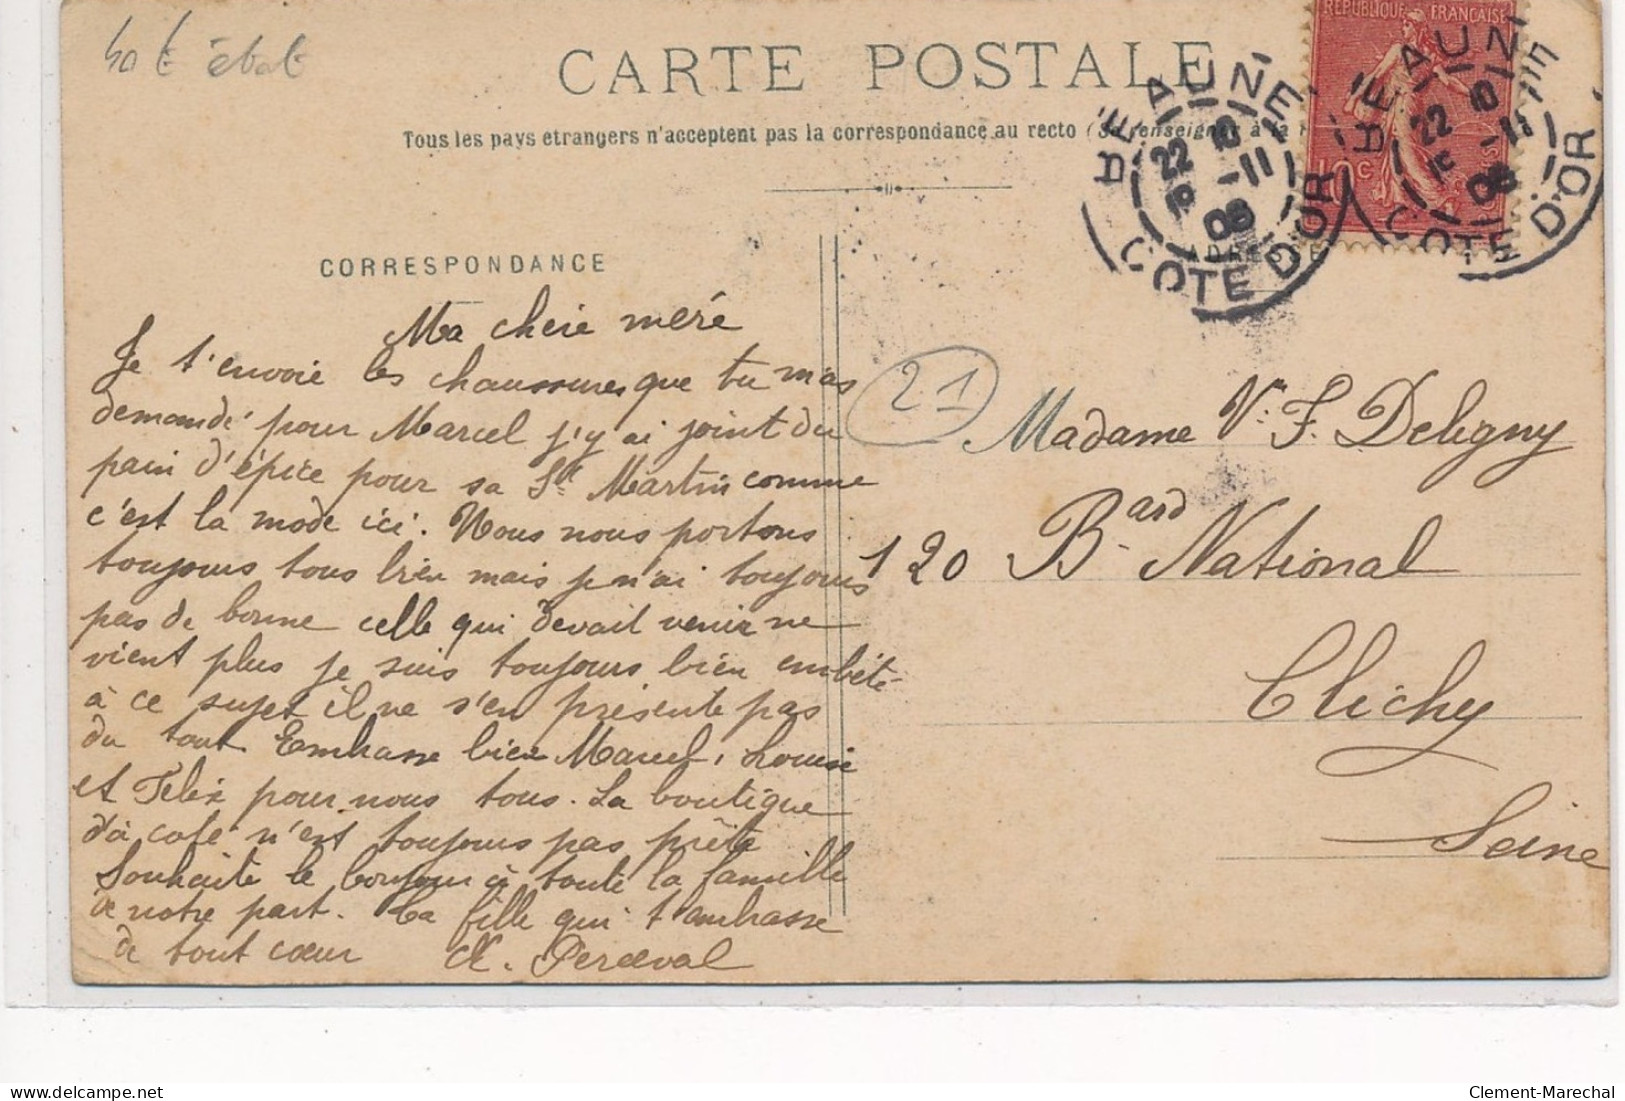 CARTE POSTALE
Tous les pays etrangers n'acceptent pas la correspondance au recto (Se renseigner à la
REPUBLIQUE FRANÇAISE
10 c
BEAUNE
22
8-11
08
COTE D'OR
BEAUNE
22
8-11
08
COTE D'OR
CORRESPONDANCE
ADRESSE
Ma cheie méré
Je t'envoie les chaussures que tu m'as
demandé pour Marcel j'y ai joint du
pain d'épice pour sa St Martin comme
c'est la mode ici. Nous nous portons
toujours tous bien mais je n'ai toujours
pas de bonne celle qui devait venir ne
vient plus je suis toujours bien embété
à ce sujet il ne s'en présente pas
du tout Embrasse bien Marcel, Louise
et Felix pour nous tous. La boutique
d'à coté n'est toujours pas prête
Souhaite le bonjour à toute la famille
de notre part. Ta fille qui t'embrasse
de tout cœur Perceval
21
Madame Ve F. Deligny
120 Bard National
Clichy
Seine
Clement-Marechal
delcampe.net